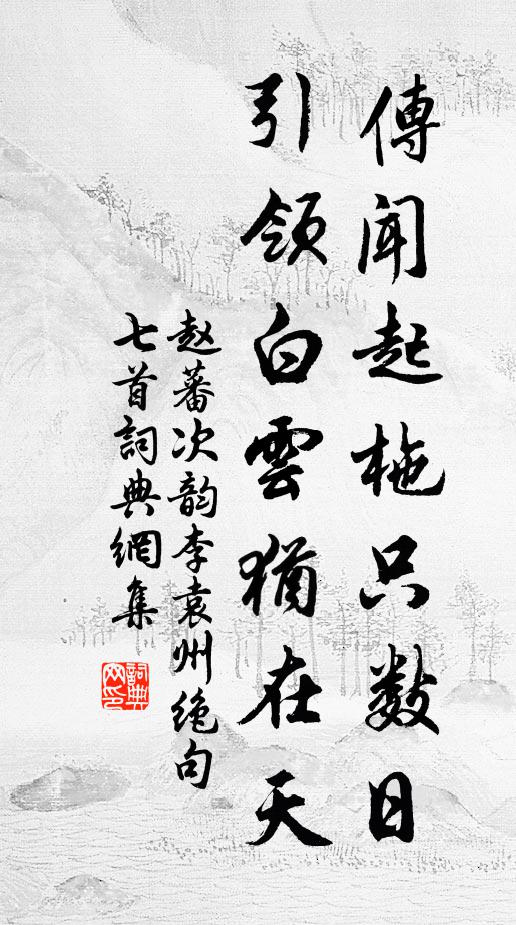 傳聞起柂只数日
引領白雲猶在天
赵蕃次韵李袁州绝句
七首詞典網集
詞典
网印